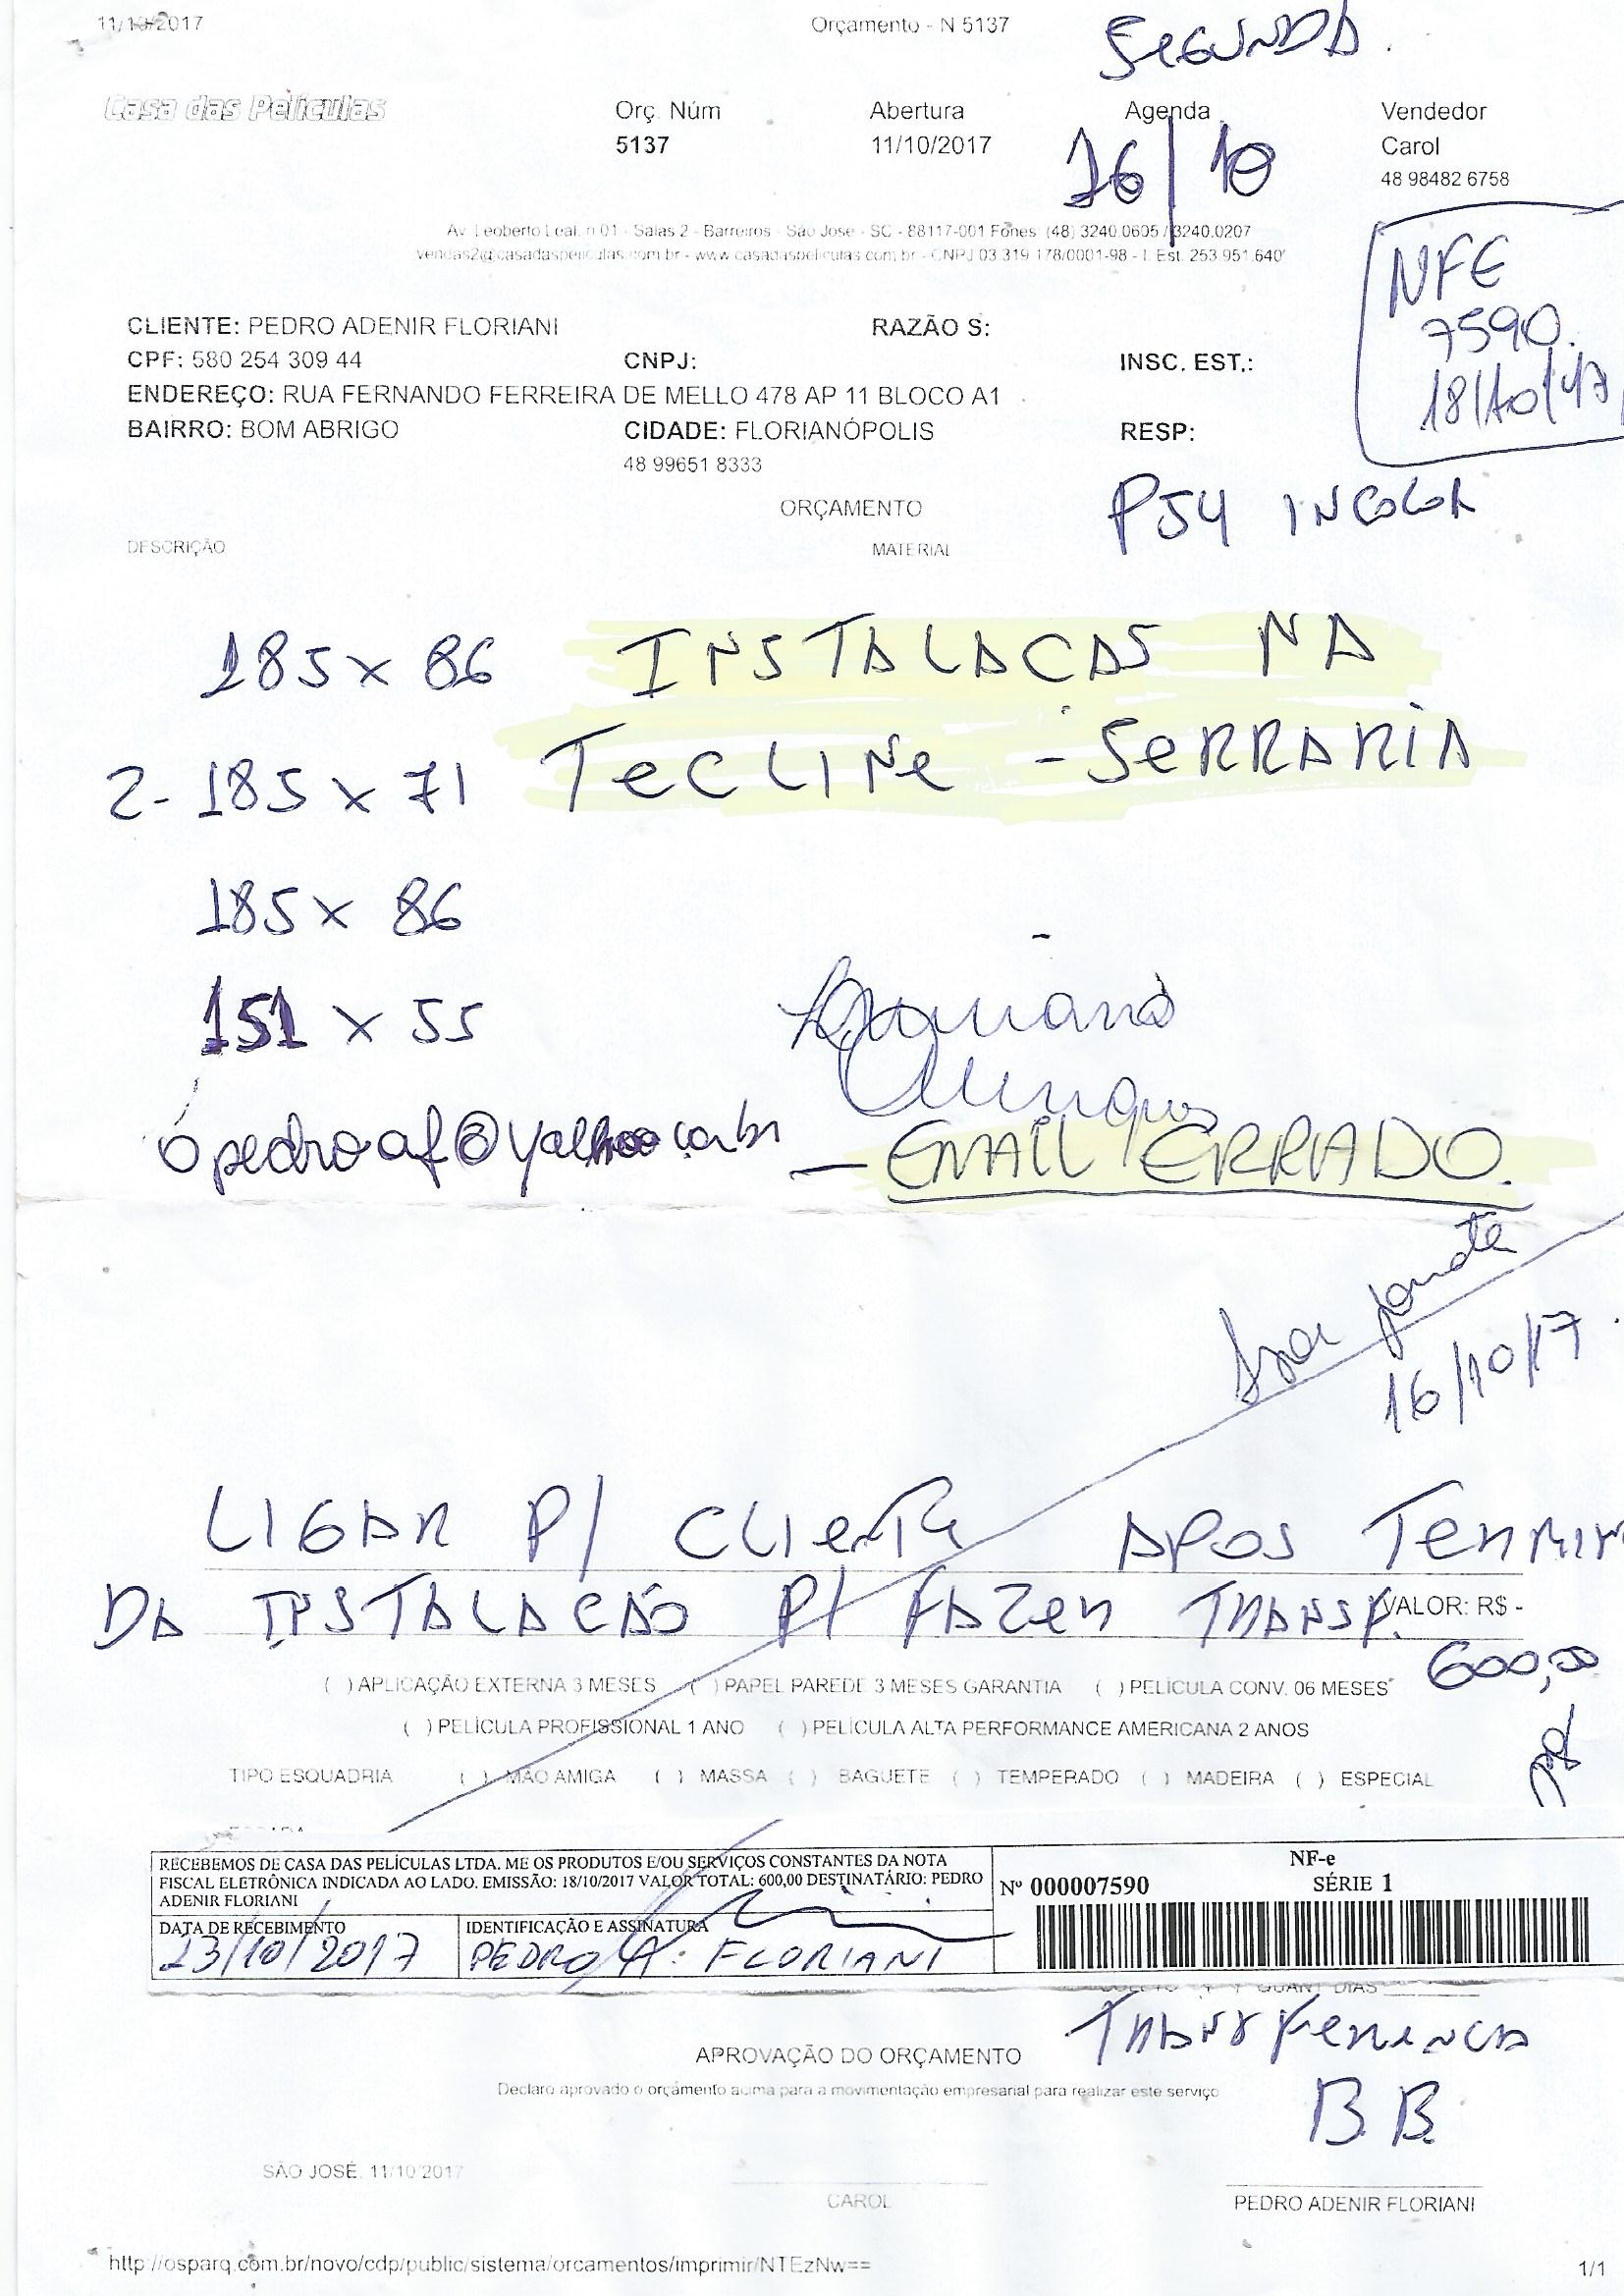 11/10/2017 Orçamento - N 5137
SEGUNDA.
Casa das Películas
Orç. Núm Abertura Agenda Vendedor
5137 11/10/2017 16/10 Carol
48 98482 6758
Av. Leoberto Leal, n 01 - Salas 2 - Barreiros - São Jose - SC - 88117-001 Fones: (48) 3240.0605 / 3240.0207
vendas2@casadaspeliculas.com.br - www.casadaspeliculas.com.br - CNPJ 03.319.178/0001-98 - I. Est. 253.951.640
NFE
7590.
18/10/17
CLIENTE: PEDRO ADENIR FLORIANI RAZÃO S:
CPF: 580 254 309 44 CNPJ: INSC. EST.:
ENDEREÇO: RUA FERNANDO FERREIRA DE MELLO 478 AP 11 BLOCO A1
BAIRRO: BOM ABRIGO CIDADE: FLORIANÓPOLIS RESP:
48 99651 8333
ORÇAMENTO
P54 INCOLOR
DESCRIÇÃO MATERIAL
185 x 86 INSTALACAS NA
2- 185 x 71 TECLINE - SERRARIA
185 x 86
151 x 55
opedroaf@yahoo.com.br - EMAIL ERRADO.
16/10/17
LIGAR P/ CLIENTE APOS TERMIN
DA INSTALACÃO P/ FAZER TRANSP. VALOR: R$ -
600,00
( ) APLICAÇÃO EXTERNA 3 MESES ( ) PAPEL PAREDE 3 MESES GARANTIA ( ) PELÍCULA CONV. 06 MESES
( ) PELÍCULA PROFISSIONAL 1 ANO ( ) PELÍCULA ALTA PERFORMANCE AMERICANA 2 ANOS
TIPO ESQUADRIA ( ) MÃO AMIGA ( ) MASSA ( ) BAGUETE ( ) TEMPERADO ( ) MADEIRA ( ) ESPECIAL
RECEBEMOS DE CASA DAS PELÍCULAS LTDA. ME OS PRODUTOS E/OU SERVIÇOS CONSTANTES DA NOTA
FISCAL ELETRÔNICA INDICADA AO LADO. EMISSÃO: 18/10/2017 VALOR TOTAL: 600,00 DESTINATÁRIO: PEDRO
ADENIR FLORIANI
NF-e
Nº 000007590 SÉRIE 1
DATA DE RECEBIMENTO IDENTIFICAÇÃO E ASSINATURA
23/10/2017 PEDRO A. FLORIANI
QUANT DIAS
TRANSFERENCIA
APROVAÇÃO DO ORÇAMENTO
Declaro aprovado o orçamento acima para a movimentação empresarial para realizar este serviço
B.B.
SÃO JOSÉ, 11/10/2017
CAROL PEDRO ADENIR FLORIANI
http://osparq.com.br/novo/cdp/public/sistema/orcamentos/imprimir/NTEzNw== 1/1